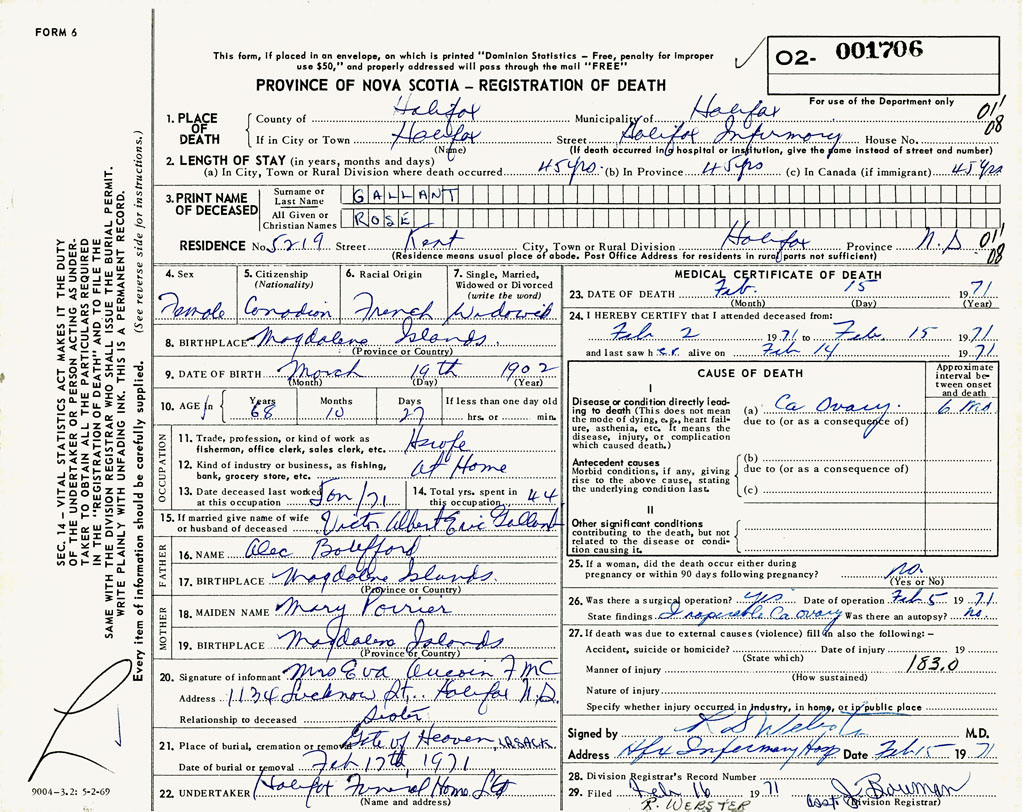 FORM 6
This form, if placed in an envelope, on which is printed "Dominion Statistics – Free, penalty for improper
use $50," and properly addressed will pass through the mail "FREE"
O2- 001706
PROVINCE OF NOVA SCOTIA – REGISTRATION OF DEATH
For use of the Department only
1. PLACE OF DEATH
County of Halifax Municipality of Halifax 01'
If in City or Town Halifax Street Halifax Infirmary House No. 08
(Name) (If death occurred in a hospital or institution, give the name instead of street and number)
2. LENGTH OF STAY (in years, months and days)
(a) In City, Town or Rural Division where death occurred 45 yrs. (b) In Province 45 yrs (c) In Canada (if immigrant) 45 yrs
3. PRINT NAME OF DECEASED
Surname or Last Name GALLANT
All Given or Christian Names ROSE
RESIDENCE No. 5219 Street Kent City, Town or Rural Division Halifax Province N.S 01'
(Residence means usual place of abode. Post Office Address for residents in rural parts not sufficient) 08
4. Sex 5. Citizenship (Nationality) 6. Racial Origin 7. Single, Married, Widowed or Divorced (write the word)
Female Canadian French Widowed
8. BIRTHPLACE Magdalene Islands.
(Province or Country)
9. DATE OF BIRTH March 19th 1902
(Month) (Day) (Year)
10. AGE in Years Months Days If less than one day old
68 10 27 hrs. or min.
OCCUPATION
11. Trade, profession, or kind of work as fisherman, office clerk, sales clerk, etc. Hswfe
12. Kind of industry or business, as fishing, bank, grocery store, etc. at Home
13. Date deceased last worked at this occupation Jan/71 14. Total yrs. spent in this occupation 44
15. If married give name of wife or husband of deceased Victor Albert Eric Gallant
FATHER
16. NAME Alec
17. BIRTHPLACE Magdalene Islands.
(Province or Country)
MOTHER
18. MAIDEN NAME Mary Poirrier
19. BIRTHPLACE Magdalene Islands
(Province or Country)
20. Signature of informant Mrs Eva Aucoin FMC
Address 1134 Lucknow St.. Halifax N.S.
Relationship to deceased Sister
21. Place of burial, cremation or removal Gate of Heaven, L.SACK.
Date of burial or removal Feb 17th 1971
22. UNDERTAKER Halifax Funeral Home Ltd
(Name and address)
MEDICAL CERTIFICATE OF DEATH
23. DATE OF DEATH Feb. 15 1971
(Month) (Day) (Year)
24. I HEREBY CERTIFY that I attended deceased from:
Feb 2 1971 to Feb. 15 1971
and last saw her alive on Feb 14 1971.
CAUSE OF DEATH
Approximate interval between onset and death
I
Disease or condition directly leading to death (This does not mean the mode of dying, e.g., heart failure, asthenia, etc. It means the disease, injury, or complication which caused death.)
(a) Ca Ovary. 6 mos
due to (or as a consequence of)
Antecedent causes
Morbid conditions, if any, giving rise to the above cause, stating the underlying condition last.
(b)
due to (or as a consequence of)
(c)
II
Other significant conditions
contributing to the death, but not related to the disease or condition causing it.
25. If a woman, did the death occur either during pregnancy or within 90 days following pregnancy? no.
(Yes or No)
26. Was there a surgical operation? yes Date of operation Feb 5 1971
State findings Inoperable Ca ovary Was there an autopsy? no.
27. If death was due to external causes (violence) fill in also the following: –
Accident, suicide or homicide? Date of injury 19
(State which)
Manner of injury 183.0
(How sustained)
Nature of injury
Specify whether injury occurred in industry, in home, or in public place
Signed by M.D.
Address Hfx Infirmary Hosp Date Feb 15 1971
28. Division Registrar's Record Number
29. Filed Feb 16 1971 J. Bowman
R. WEBSTER asst Division Registrar
SEC. 14 – VITAL STATISTICS ACT MAKES IT THE DUTY
OF THE UNDERTAKER OR PERSON ACTING AS UNDER-
TAKER TO OBTAIN ALL THE PARTICULARS REQUIRED
IN THE "REGISTRATION OF DEATH" AND TO FILE THE
SAME WITH THE DIVISION REGISTRAR WHO SHALL ISSUE THE BURIAL PERMIT.
WRITE PLAINLY WITH UNFADING INK. THIS IS A PERMANENT RECORD.
Every item of information should be carefully supplied. (See reverse side for instructions.)
9004-3.2: 5-2-69